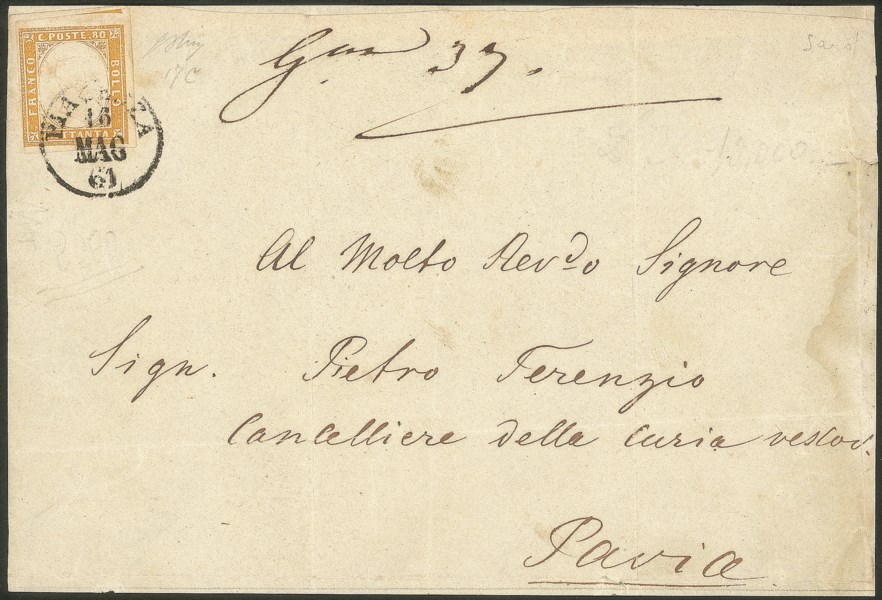 C. POSTE. 80
FRANCO
BOLLO
PIACENZA
16
MAG
61
37.
Al Molto Rev.do Signore
Sign. Pietro Terenzio
Cancelliere della curia vescov.
Pavia